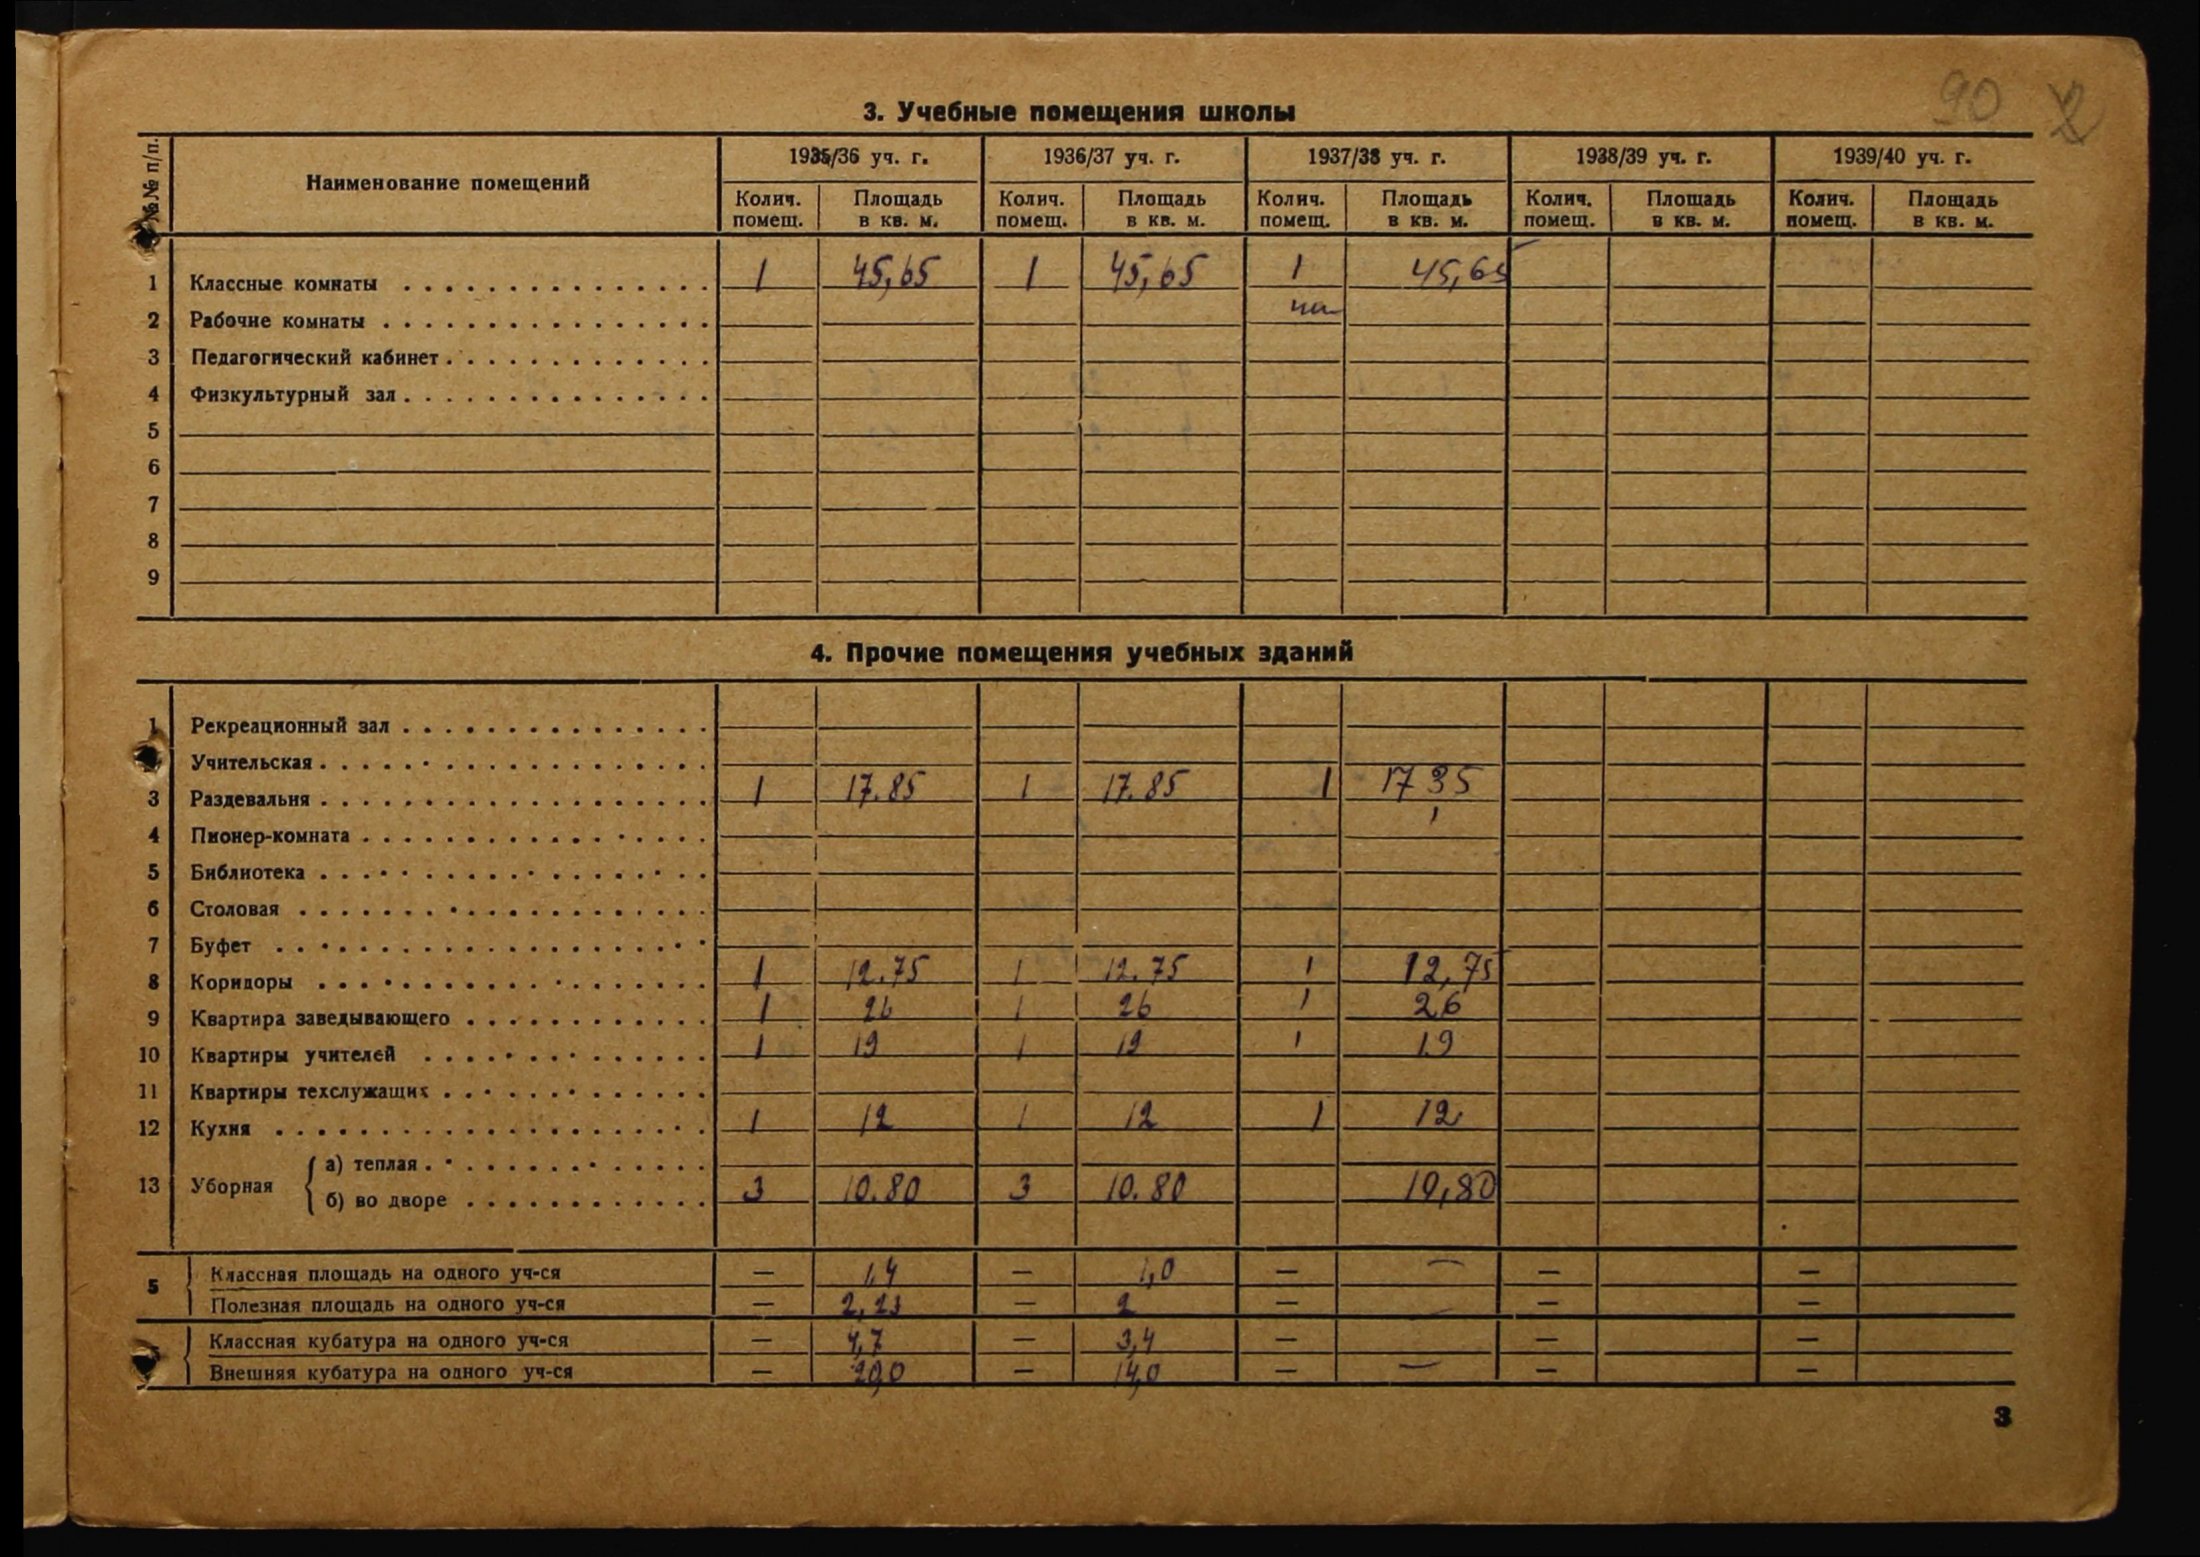 90 2
3. Учебные помещения школы
№№ п/п. Наименование помещений 1935/36 уч. г. 1936/37 уч. г. 1937/38 уч. г. 1938/39 уч. г. 1939/40 уч. г.
Колич. помещ. Площадь в кв. м. Колич. помещ. Площадь в кв. м. Колич. помещ. Площадь в кв. м. Колич. помещ. Площадь в кв. м. Колич. помещ. Площадь в кв. м.
1 Классные комнаты 1 45,65 1 45,65 1 45,65
2 Рабочие комнаты
3 Педагогический кабинет
4 Физкультурный зал
5
6
7
8
9
4. Прочие помещения учебных зданий
1 Рекреационный зал
Учительская
3 Раздевальня 1 17.85 1 17.85 1 17 35
4 Пионер-комната
5 Библиотека
6 Столовая
7 Буфет
8 Коридоры 1 12.75 1 12.75 1 12,75
9 Квартира заведывающего 1 26 1 26 1 26
10 Квартиры учителей 1 19 1 19 1 19
11 Квартиры техслужащих
12 Кухня 1 12 1 12 1 12
13 Уборная а) теплая
б) во дворе 3 10.80 3 10.80 10,80
5 Классная площадь на одного уч-ся — 1,4 — 1,0 — — — —
Полезная площадь на одного уч-ся — 2,23 — 2 — — — —
Классная кубатура на одного уч-ся — 4,7 — 3,4 — — —
Внешняя кубатура на одного уч-ся — 20,0 — 14,0 — — — —
3